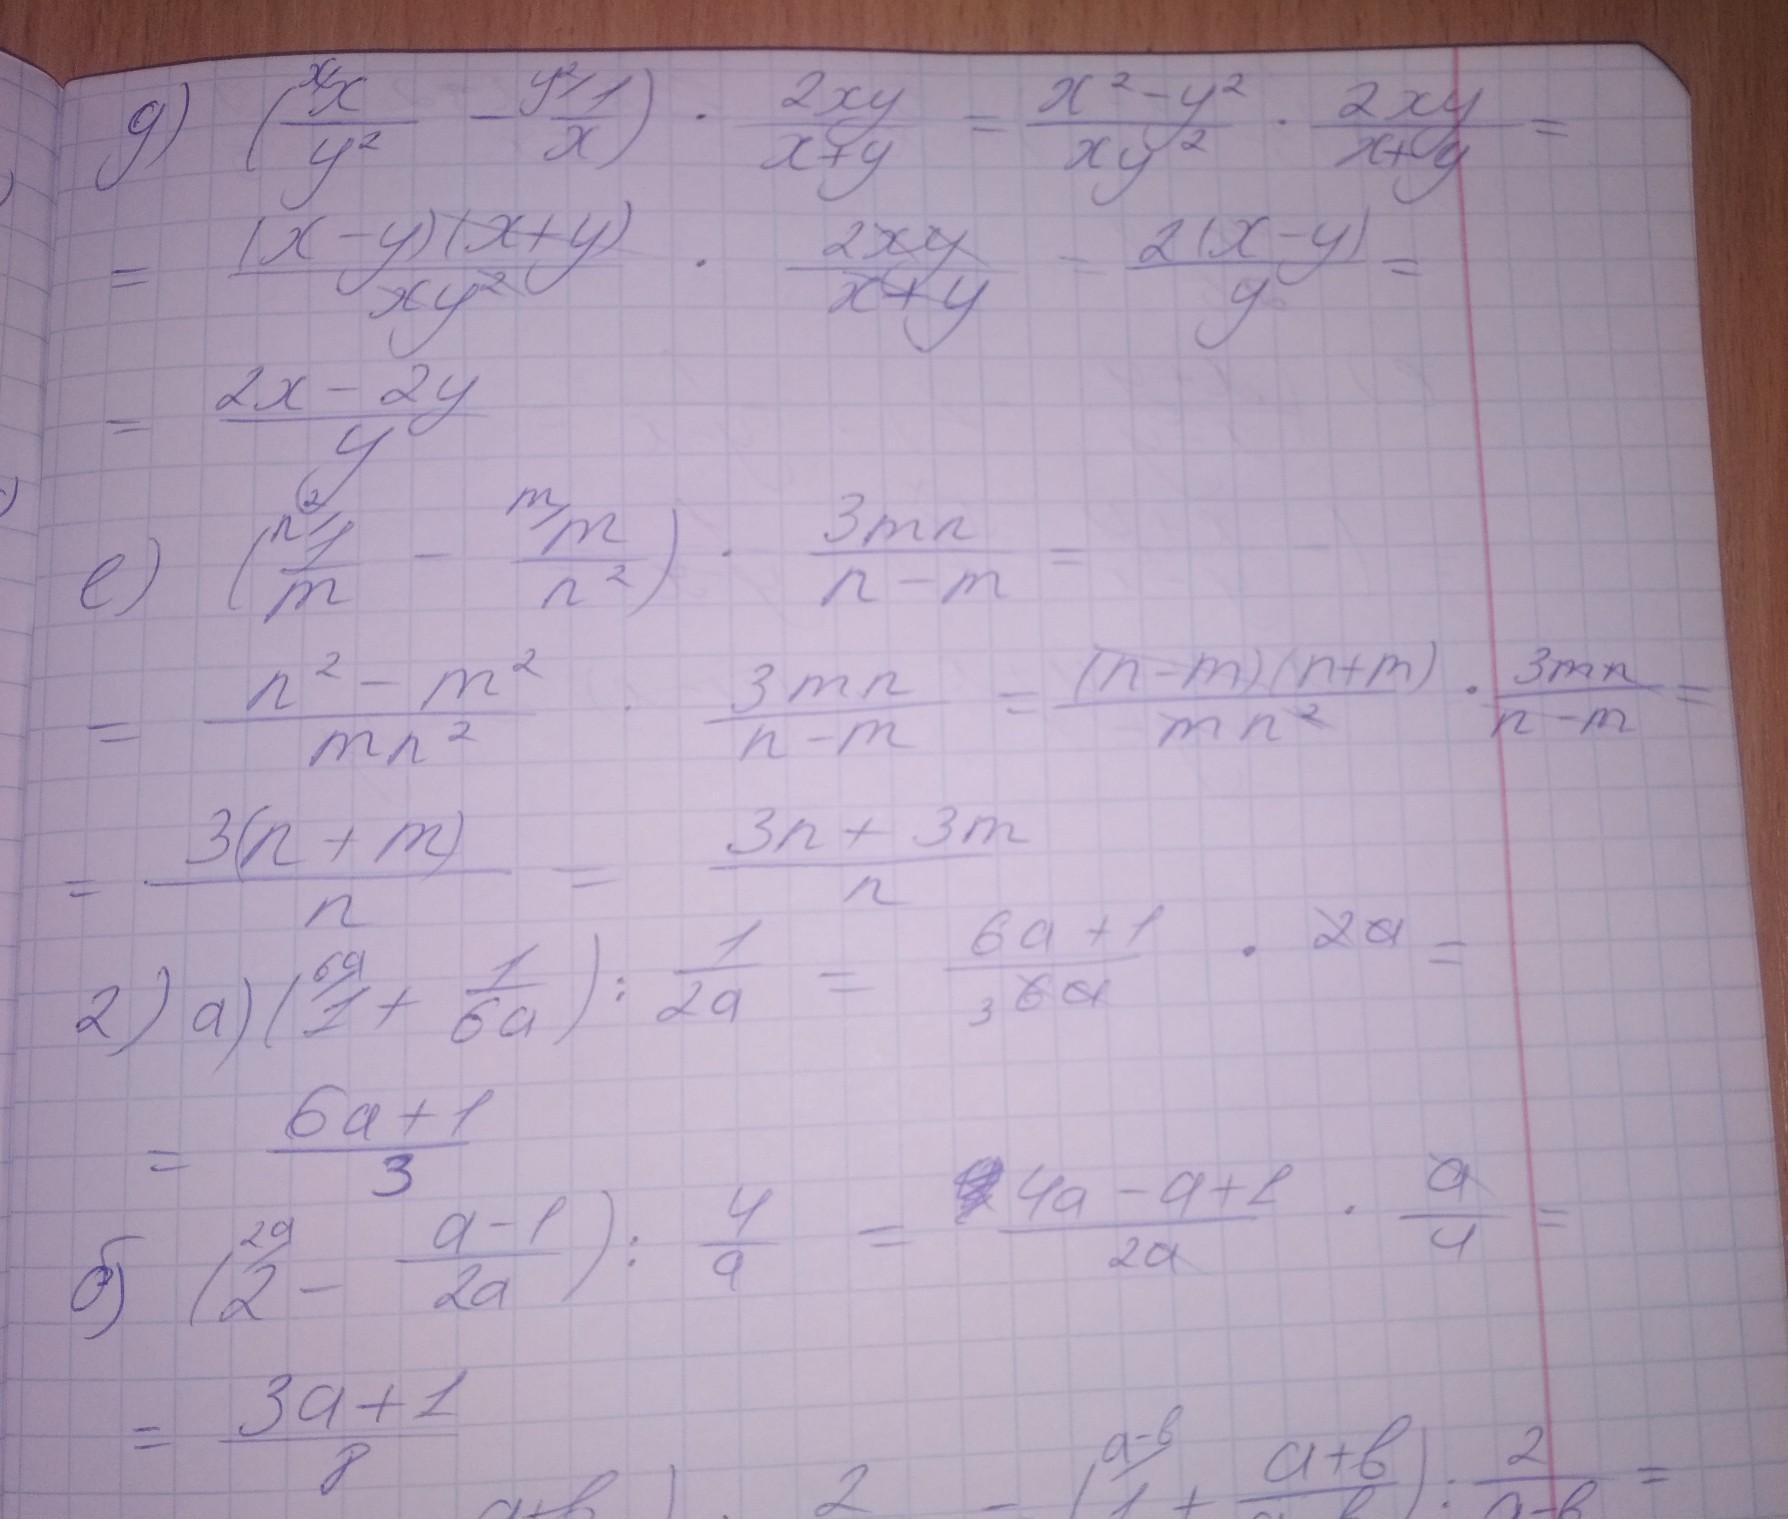 д) (x/ x/y² − y²/ 1/x) · 2xy/x+y = x²−y²/xy² · 2xy/x+y =
= (x−y)(x+y)/xy² · 2xy/x+y = 2(x−y)/y =
= 2x − 2y/y
е) (n²/ 1/m − m/ m/n²) · 3mn/n−m =
= n²−m²/mn² · 3mn/n−m = (n−m)(n+m)/mn² · 3mn/n−m =
= 3(n+m)/n = 3n+3m/n
2) а) (6a/ 1 + 1/6a) : 1/2a = 6a+1/3 6a · 2a =
= 6a+1/3
б) (2a/ 2 − a−1/2a) : 4/a = 4a−a+1/2a · a/4 =
= 3a+1/8
a+b ) · 2 = (a−b/ 1 + a+b/a−b) : 2/a−b =